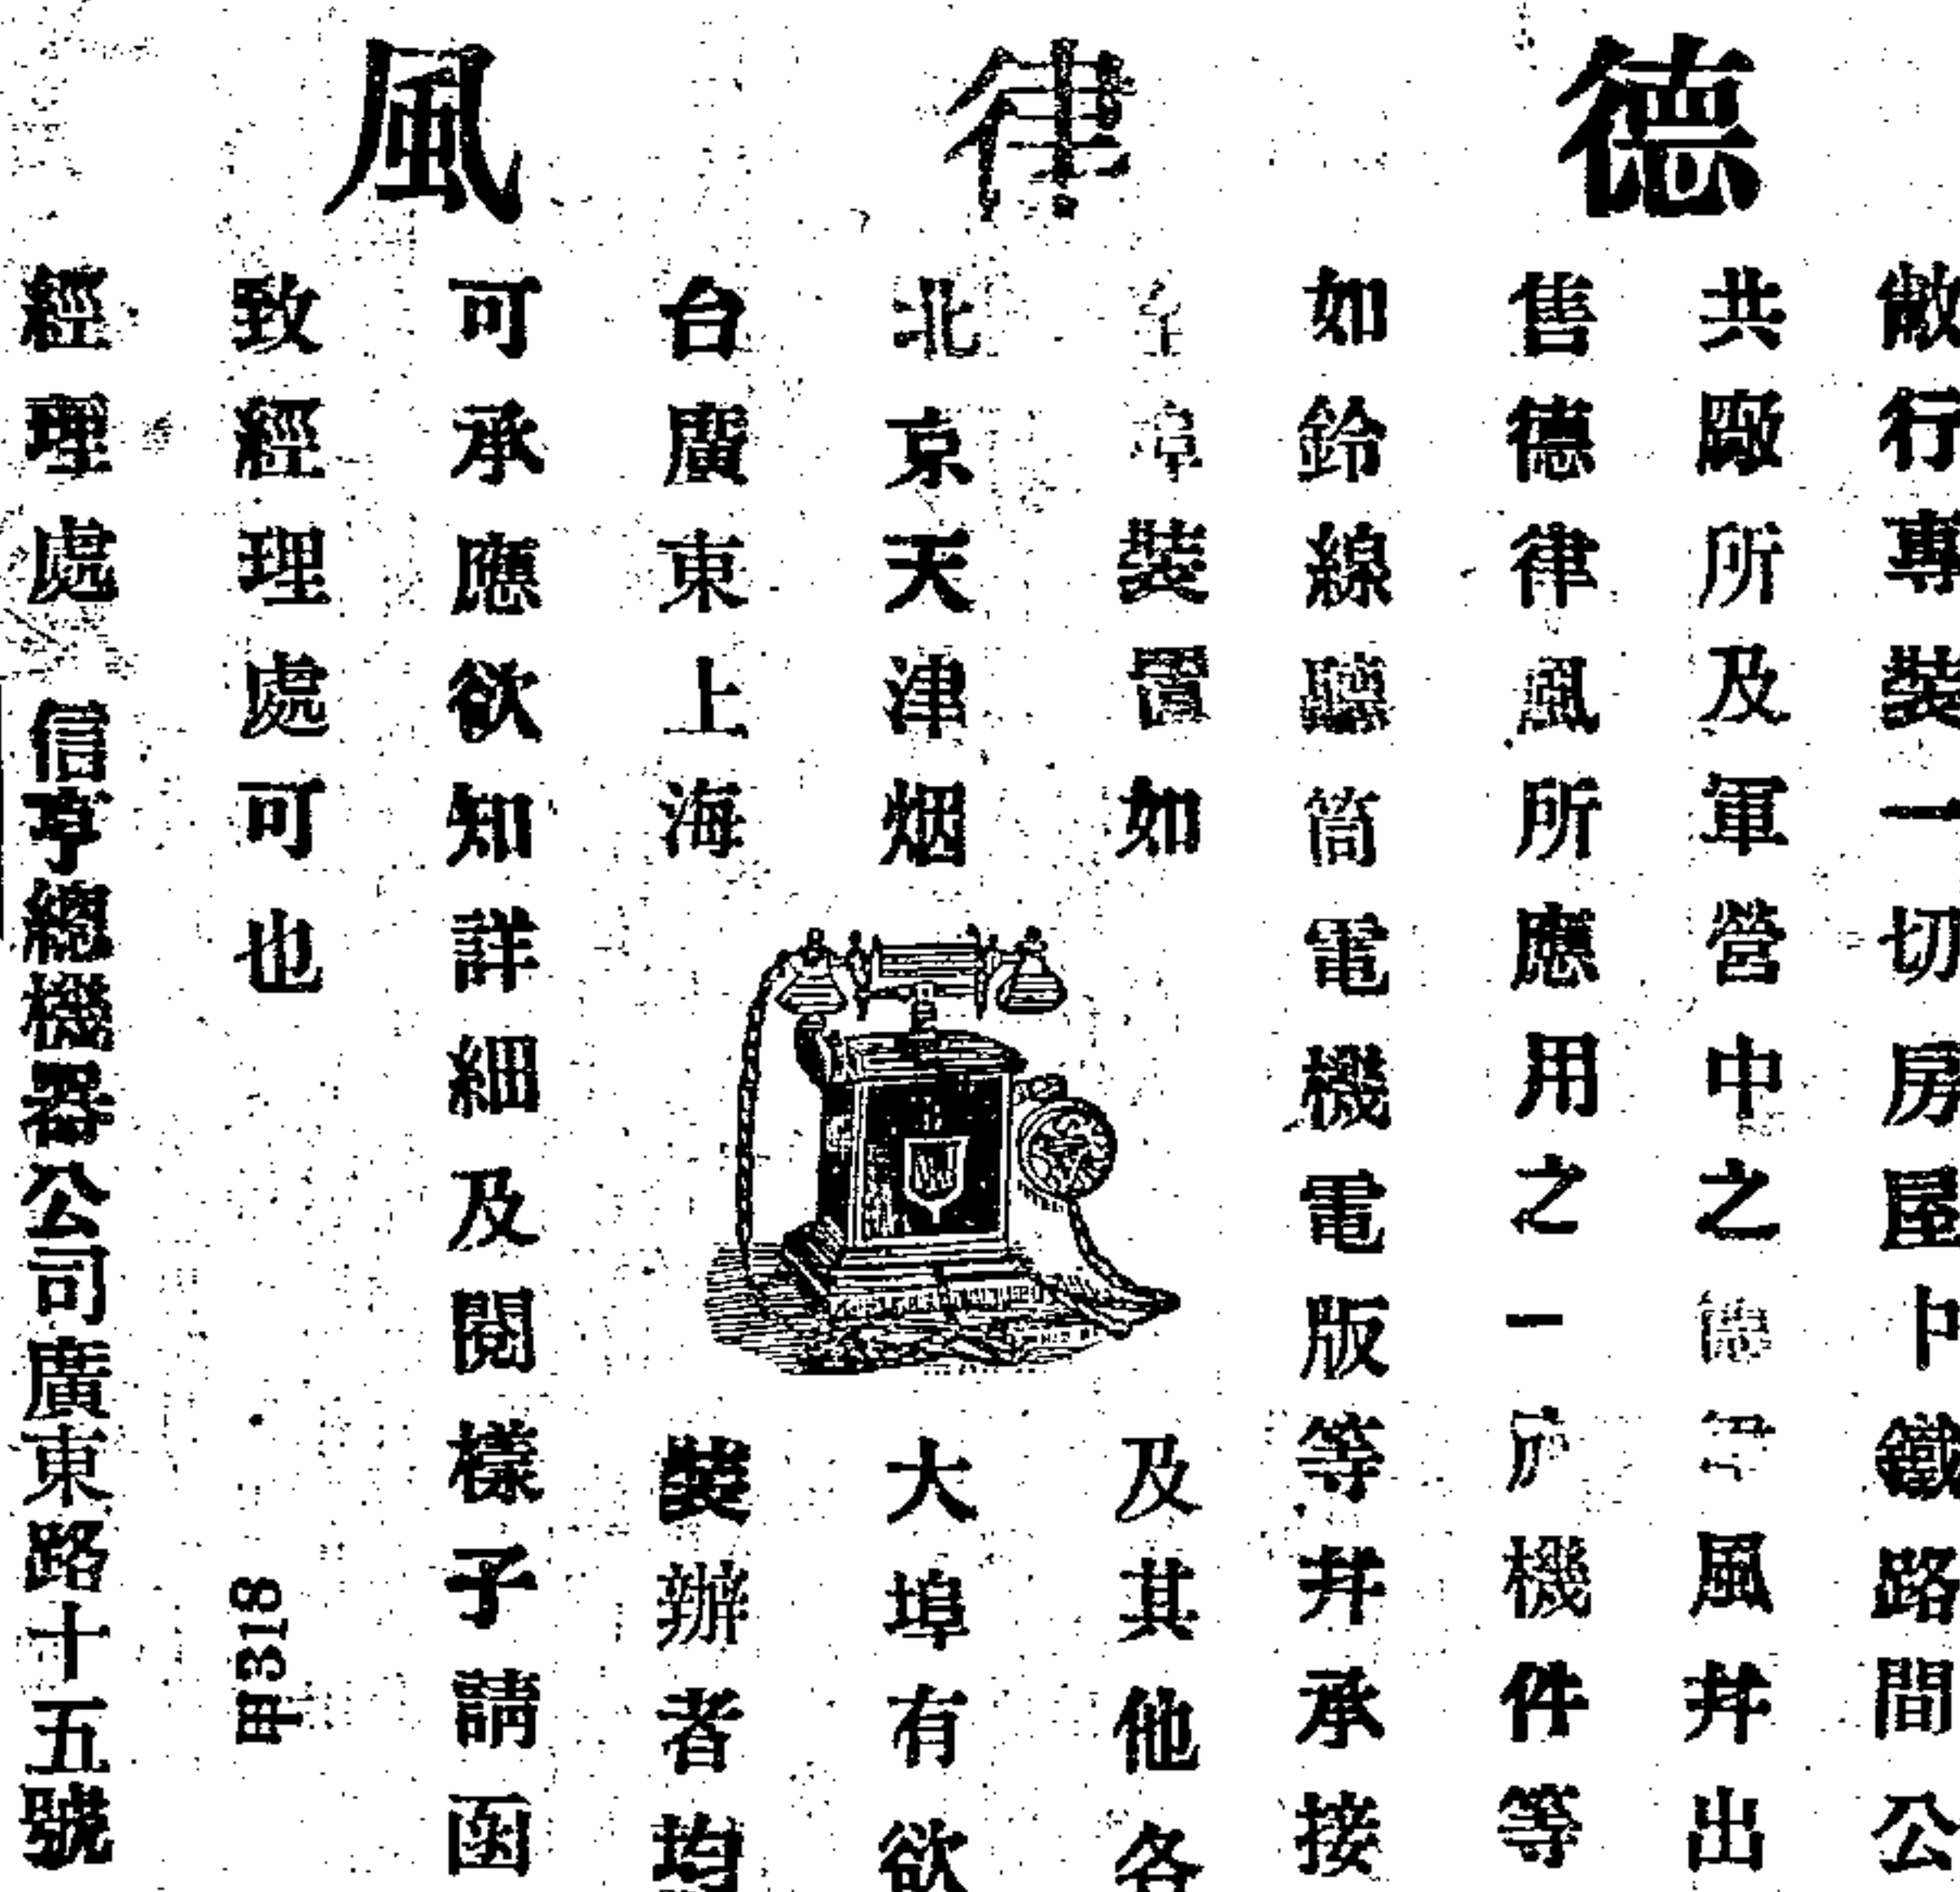 德律風
敝行專裝一切房屋中鐵路間公
共廠所及軍營中之德律風并出
售德律風所應用之一应機件等
如鈴線聽筒電機電版等并承接
各埠裝置如及其他各
北京天津烟大埠有欲
台廣東上海裝辦者均
可承應欲知詳細及閱樣子請函
致經理處可也
甲318
經理處
信亨總機器公司廣東路十五號